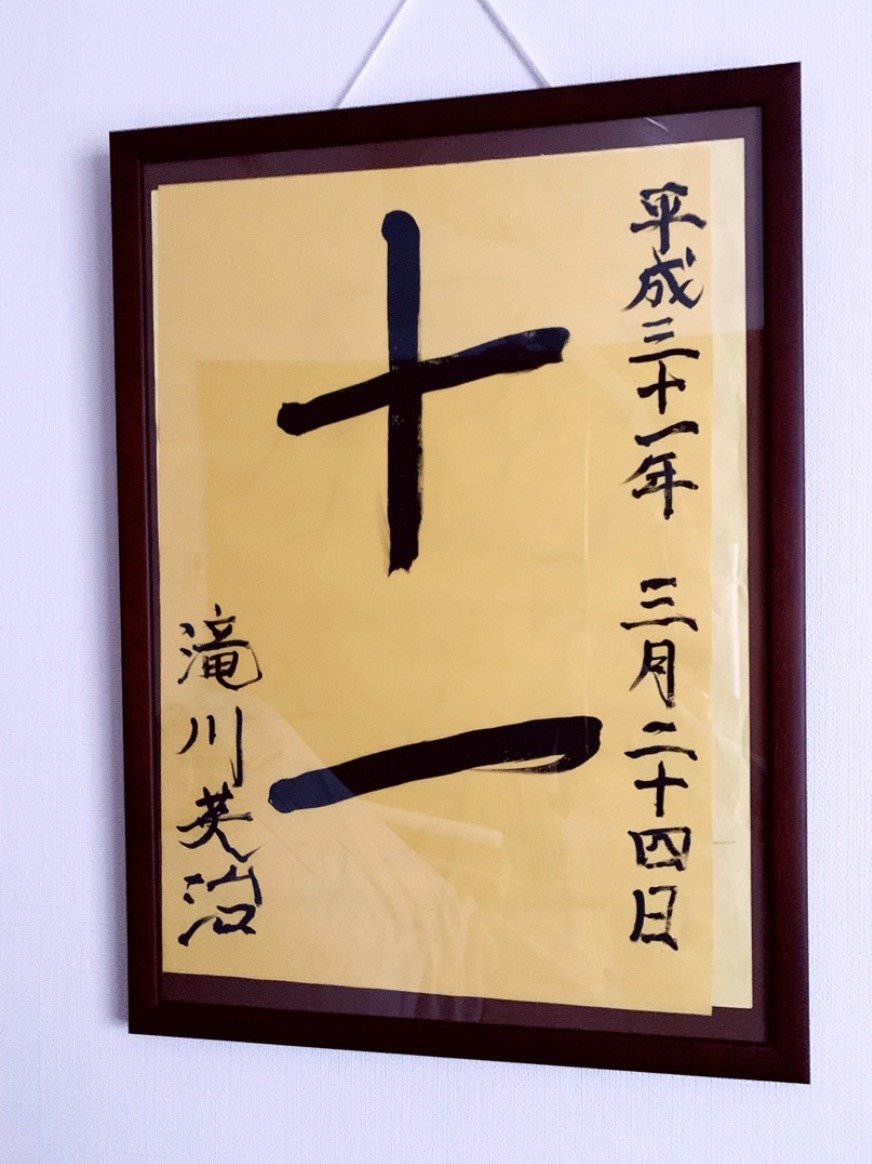 平成三十一年 三月二十四日
十一
滝川英治